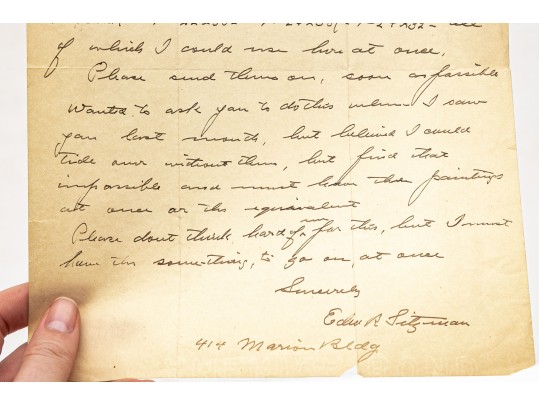 of which I could use here at once.
Please send them on, soon as possible
Wanted to ask you to do this when I saw
you last month, but believed I could
tide over without them, but find that
impossible and must have the paintings
at once or the equivalent
Please dont think hard of me for this, but I must
have the something, to go on, at once
Sincerely
Edw R Sitzman
414 Marion Bldg